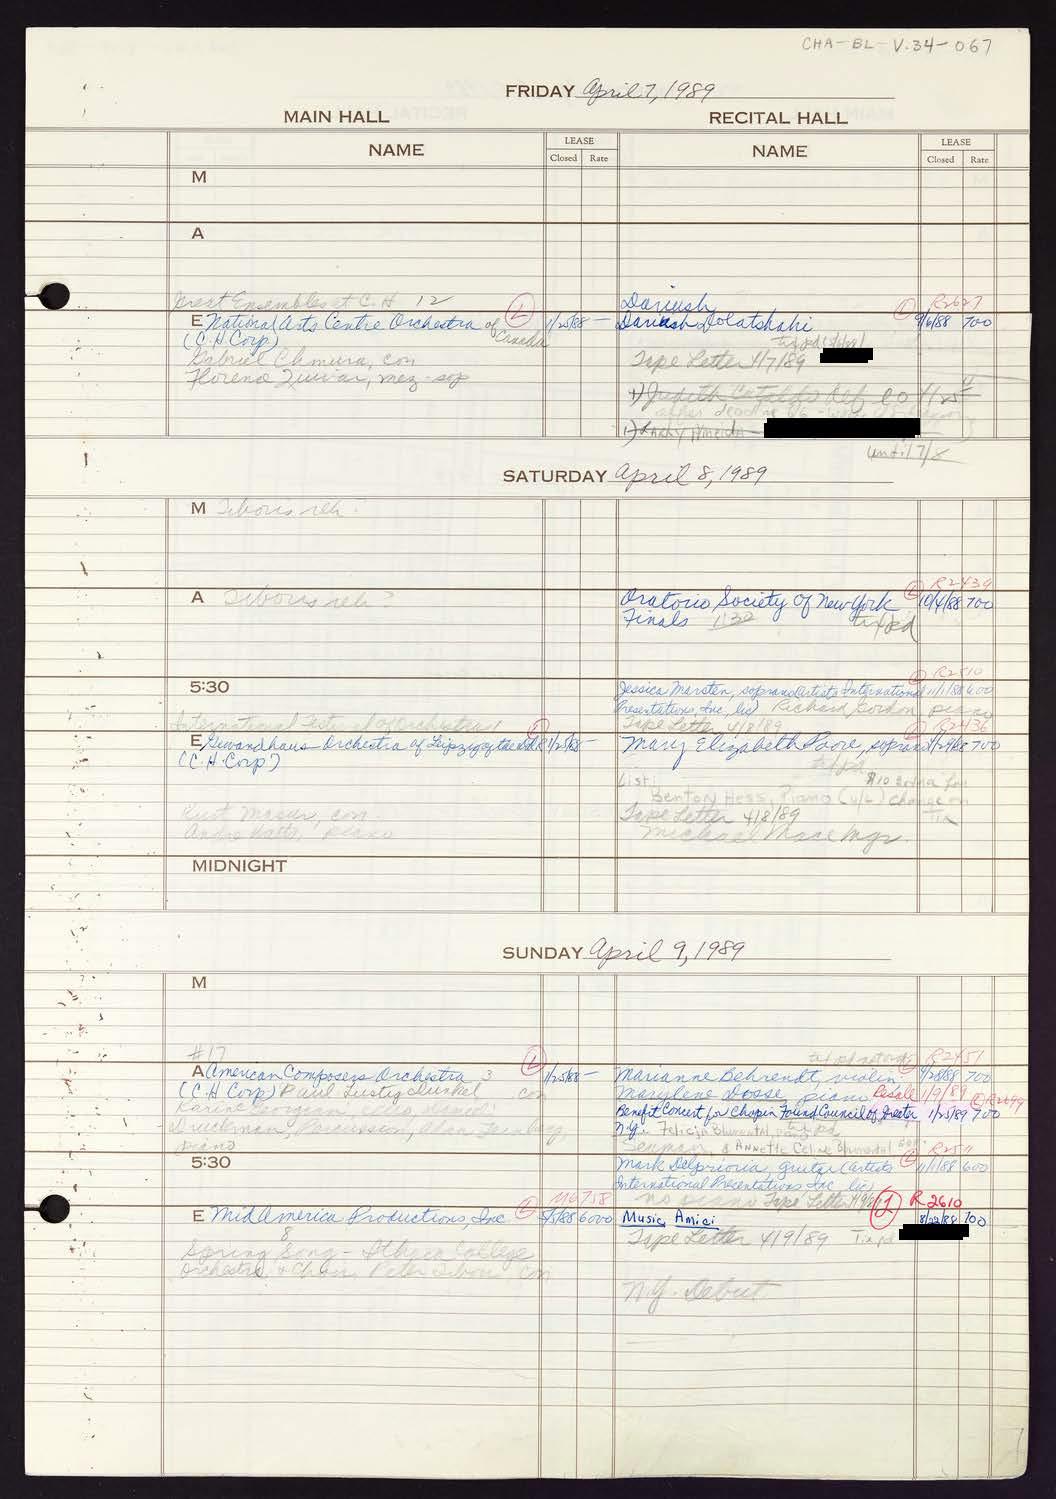 CHA-BL-V.34-067
FRIDAY April 7, 1989
MAIN HALL RECITAL HALL
NAME LEASE NAME LEASE
Closed Rate Closed Rate
M
A
Great Ensembles at C.H 12
E National Arts Centre Orchestra of Canada L 1/25/88 —
(C.H Corp)
Gabriel Chmura, con
Florence Quivar, mez-sop
Dariush L R2627
Dariush Dolatshahi 9/6/88 700
tix pd
Tape Letter 4/7/89
1) Judith
after deadline
1)
until 7/8
SATURDAY April 8, 1989
M Tiboris reh?
A Tiboris reh?
L R2439
Oratorio Society of New York 10/4/88 700
Finals 1:30 tix pd
5:30
L R2510
Jessica Marsten, soprano (Artists International 11/1/88 600
Presentations, Inc, lic) Richard Gordon piano
Tape Letter 4/8/89
International Festival of Orchestras 1 L
E Gewandhaus Orchestra of Leipzig 1/25/88 —
(C.H. Corp)
Kurt Masur, con.
Andre Watts, piano
L R2436
Mary Elizabeth Poore, soprano 700
tix pd
List:
Benton Hess, Piano (u/l) change on
$10 extra for
tix
Tape Letter 4/8/89
Michael Mace Mgr.
MIDNIGHT
SUNDAY April 9, 1989
M
#17
A American Composers Orchestra 3 L 1/25/88 —
(C.H Corp) Paul Lustig Dunkel con
Druckman, Percussion, Alan Feinberg,
piano
R2451
Marianne Behrendt, violin 700
Marylene Dosse, piano Resale 1/9/89 L R2699
Benefit Concert for Chopin Found Council of Greater 1/25/89 700
N.Y. Felicja Blumental, piano tix pd
& Annette Celine Blumental
5:30
L R2511
Mark Delprioria, guitar (Artists 11/1/88 600
International Presentations Inc, lic)
no piano Tape Letter 4/9/89
L M6758
E Mid America Productions, Inc 6000
8
Spring Song - Ithaca College
Orchestra & Choir, Peter Tiboris, con
L R2610
Music Amici 8/22/88 700
Tape Letter 4/9/89 Tix pd
N.Y. Debut